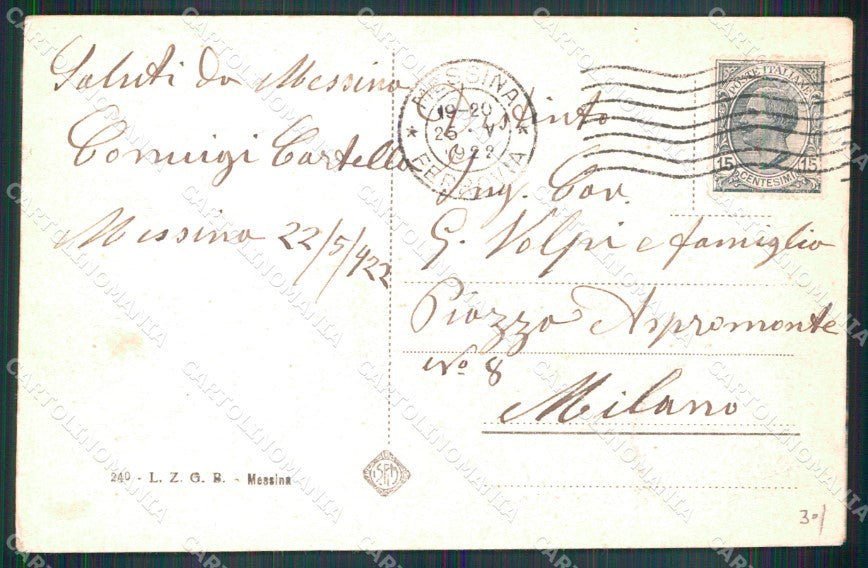 Saluti da Messina
Comuigi Cartella
Messina 22/5/922
MESSINA
19-20
25 · V
1922
FERROVIA
POSTE ITALIANE
15 15
CENTESIMI
Distinto
Ing. Cav.
G. Volpi e famiglia
Piazza Aspromonte
No 8
Milano
240 - L. Z. G. B. - Messina
CARTOLINOMANIA